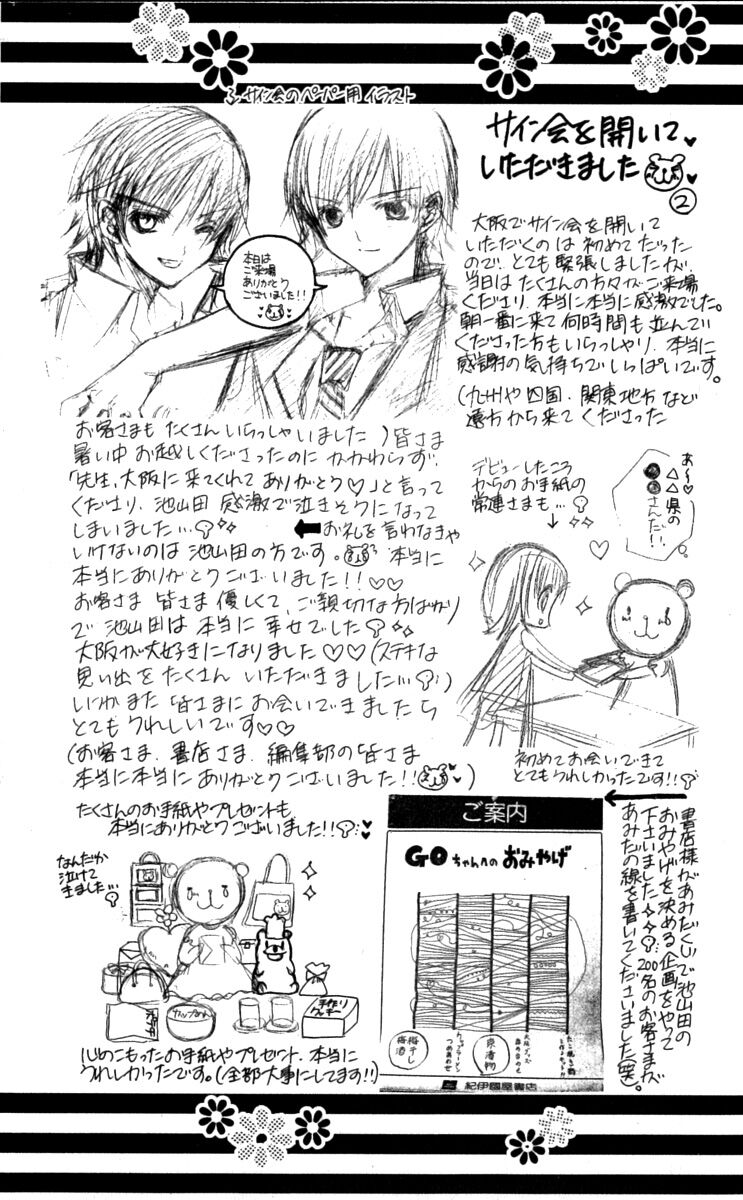 サイン会のペーパー用イラスト
サイン会を開いて
いただきました
②
本日は
ご来場
ありがとう
ございました!!
大阪でサイン会を開いて
いただくのは初めてだった
ので、とても緊張しましたが、
当日はたくさんの方々がご来場
くださり、本当に本当に感激でした。
朝一番に来て何時間も並んで
くださった方もいらっしゃり、本当に
感謝の気持ちでいっぱいです。
(九州や四国、関東地方など
遠方から来てくださった
お客さまもたくさんいらっしゃいました)皆さま
暑い中お越しくださったのにかかわらず、
「先生、大阪に来てくれてありがとう♡」と言って
くださり、池山田感激で泣きそうになって
しまいました…
←お礼を言わなきゃ
いけないのは池山田の方です。本当に
本当にありがとうございました!!♡♡
お客さま皆さま優しくて、ご親切な方ばかり
で池山田は本当に幸せでした
大阪が大好きになりました♡♡(ステキな
思い出をたくさんいただきました…)
いつかまた皆さまにお会いできましたら
とてもうれしいです♡♡
(お客さま、書店さま、編集部の皆さま
本当に本当にありがとうございました!!)
デビューしたころ
からのお手紙の
常連さまも…
↓
あ〜♡
△△県の
●●さんだ!!
初めてお会いできて
とてもうれしかったです!!
たくさんのお手紙やプレゼントも
本当にありがとうございました!!
なんだか
泣けて
きました…
カップめん
手作り
クッキー
心のこもったお手紙やプレゼント、本当に
うれしかったです。(全部大事にしてます!!)
ご案内
GOちゃんへのおみやげ
梅干し
梅酒
カップラーメン
つめあわせ
京漬物
大阪グッズ
たこ焼き
紀伊國屋書店
書店様があみだくじで池山田の
おみやげを決める企画をやって
下さいました 200名のお客さまが
あみだの線を書いてくださいました(笑)。